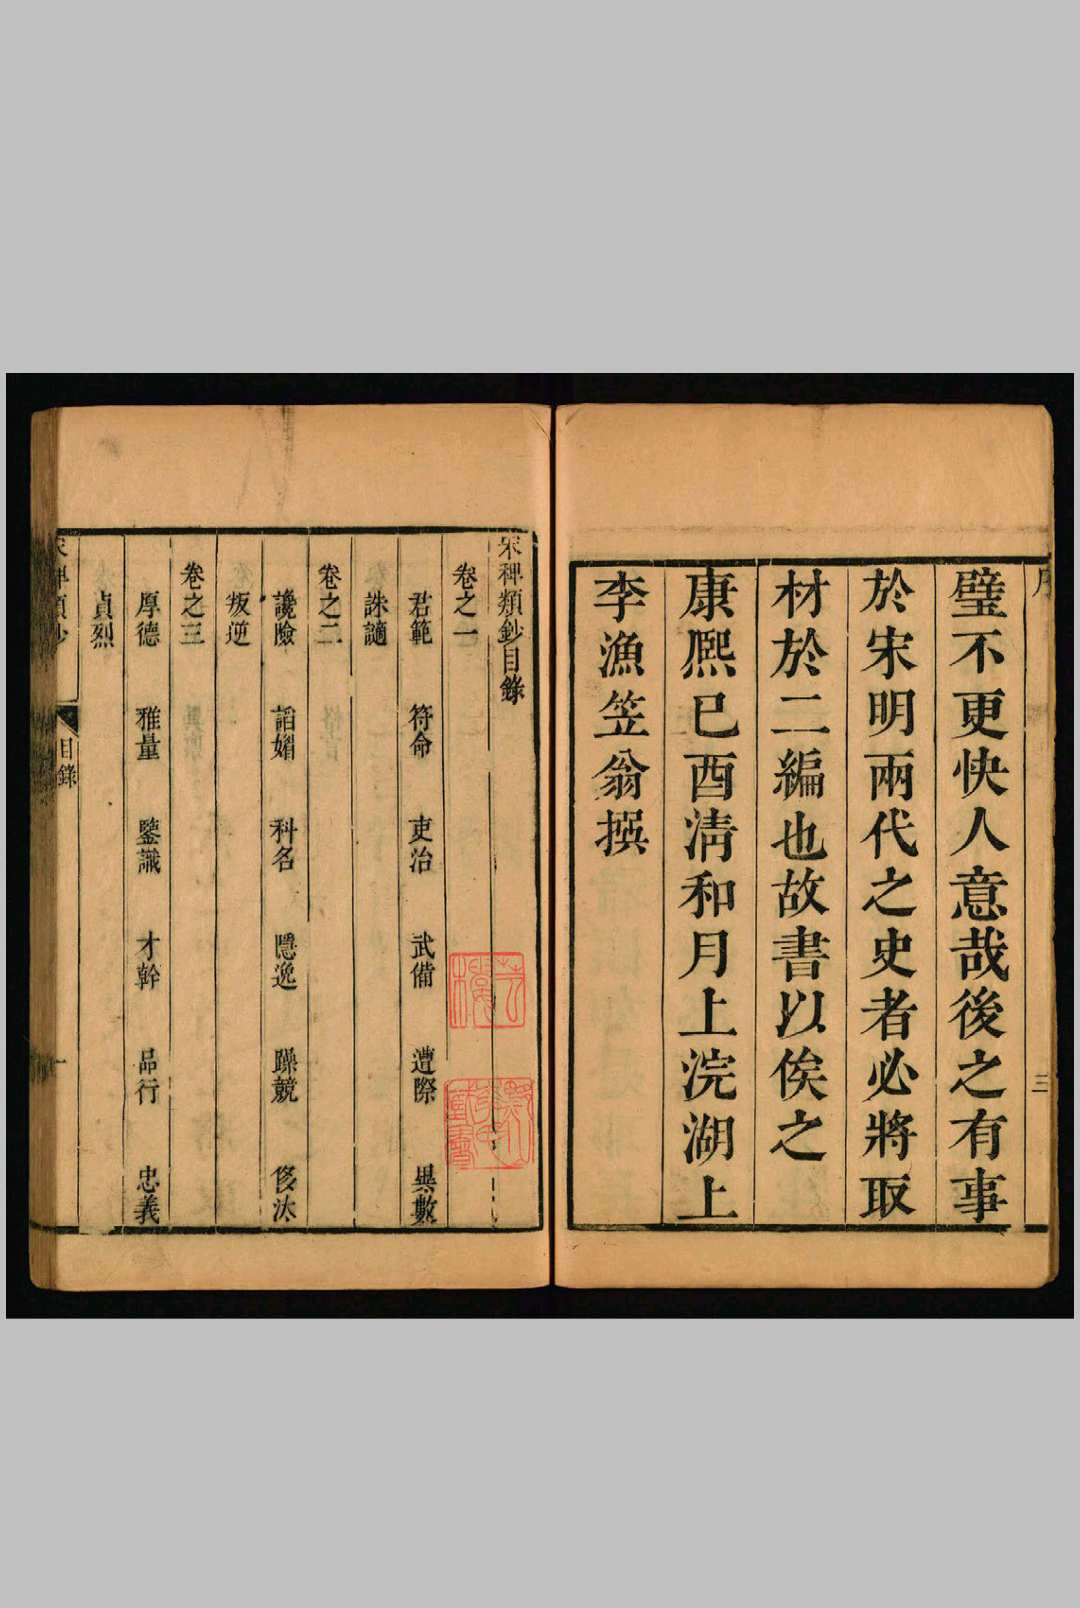 序
三
璧不更快人意哉後之有事
於宋明兩代之史者必將取
材於二編也故書以俟之
康熙已酉清和月上浣湖上
李漁笠翁撰
宋稗類鈔目錄
卷之一
君範 符命 吏治 武備 遭際 異數
誅謫
卷之二
讒險 謟媚 科名 隱逸 躁競 侈汰
叛逆
卷之三
厚德 雅量 鑒識 才幹 品行 忠義
貞烈
宋稗類鈔 目錄 一